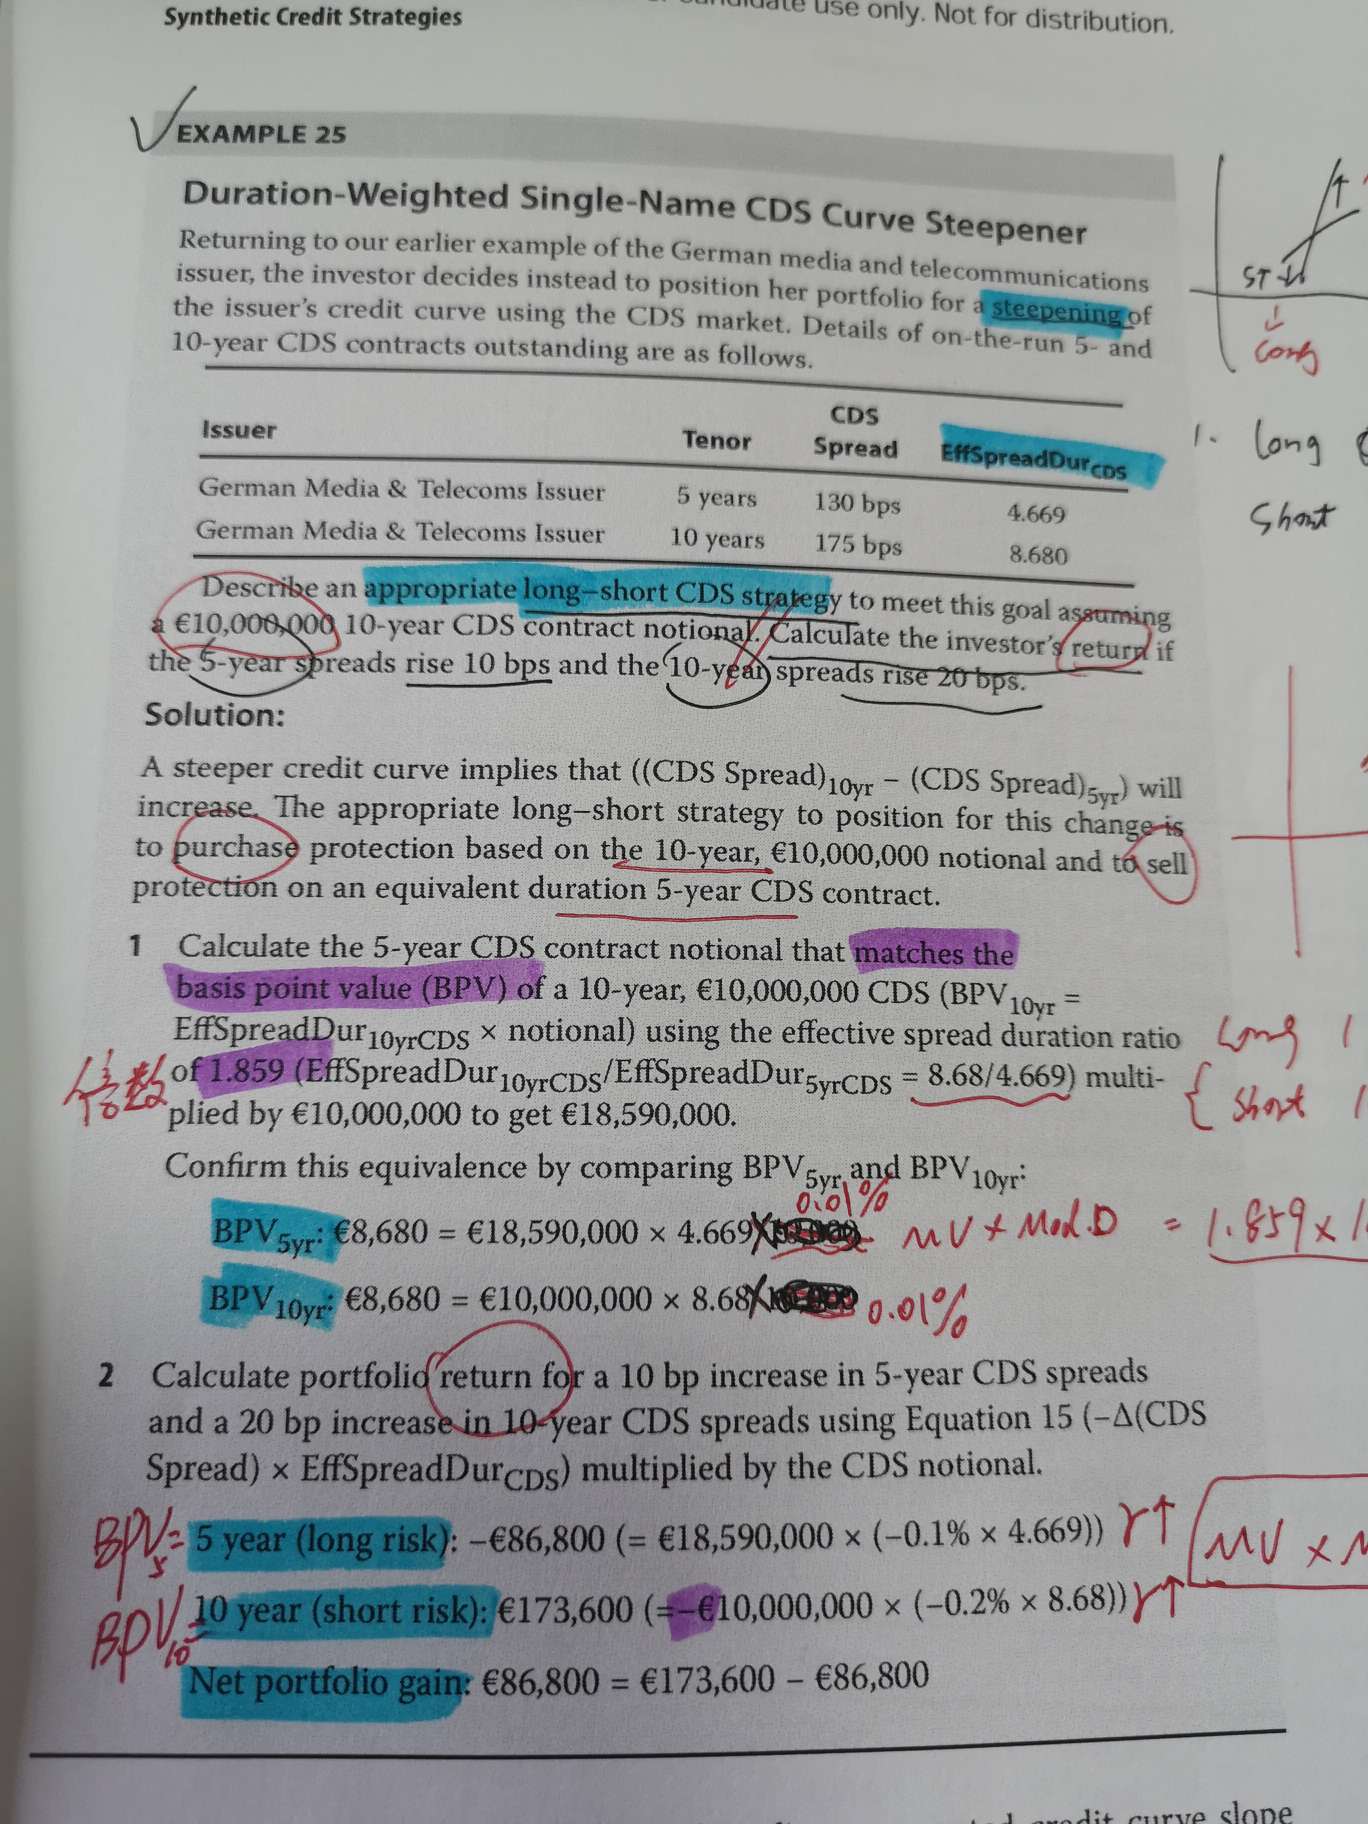 Synthetic Credit Strategies
candidate use only. Not for distribution.
EXAMPLE 25
Duration-Weighted Single-Name CDS Curve Steepener
Returning to our earlier example of the German media and telecommunications
issuer, the investor decides instead to position her portfolio for a steepening of
the issuer's credit curve using the CDS market. Details of on-the-run 5- and
10-year CDS contracts outstanding are as follows.
ST
long
1. long
Short
Issuer Tenor CDS Spread EffSpreadDurCDS
German Media & Telecoms Issuer 5 years 130 bps 4.669
German Media & Telecoms Issuer 10 years 175 bps 8.680
Describe an appropriate long–short CDS strategy to meet this goal assuming
a €10,000,000 10-year CDS contract notional. Calculate the investor's return if
the 5-year spreads rise 10 bps and the 10-year spreads rise 20 bps.
Solution:
A steeper credit curve implies that ((CDS Spread)10yr – (CDS Spread)5yr) will
increase. The appropriate long–short strategy to position for this change is
to purchase protection based on the 10-year, €10,000,000 notional and to sell
protection on an equivalent duration 5-year CDS contract.
1 Calculate the 5-year CDS contract notional that matches the
basis point value (BPV) of a 10-year, €10,000,000 CDS (BPV10yr =
EffSpreadDur10yrCDS × notional) using the effective spread duration ratio
of 1.859 (EffSpreadDur10yrCDS/EffSpreadDur5yrCDS = 8.68/4.669) multi-
plied by €10,000,000 to get €18,590,000.
倍数
Long 1
Short 1
Confirm this equivalence by comparing BPV5yr and BPV10yr:
0.01%
BPV5yr: €8,680 = €18,590,000 × 4.669 X MV × Mod.D = 1.859 × 1
BPV10yr: €8,680 = €10,000,000 × 8.68 X 0.01%
2 Calculate portfolio return for a 10 bp increase in 5-year CDS spreads
and a 20 bp increase in 10-year CDS spreads using Equation 15 (–Δ(CDS
Spread) × EffSpreadDurCDS) multiplied by the CDS notional.
BPV5 = 5 year (long risk): –€86,800 (= €18,590,000 × (–0.1% × 4.669)) r↑ MV × M
BPV10 = 10 year (short risk): €173,600 (= –€10,000,000 × (–0.2% × 8.68)) r↑
Net portfolio gain: €86,800 = €173,600 – €86,800
credit curve slope